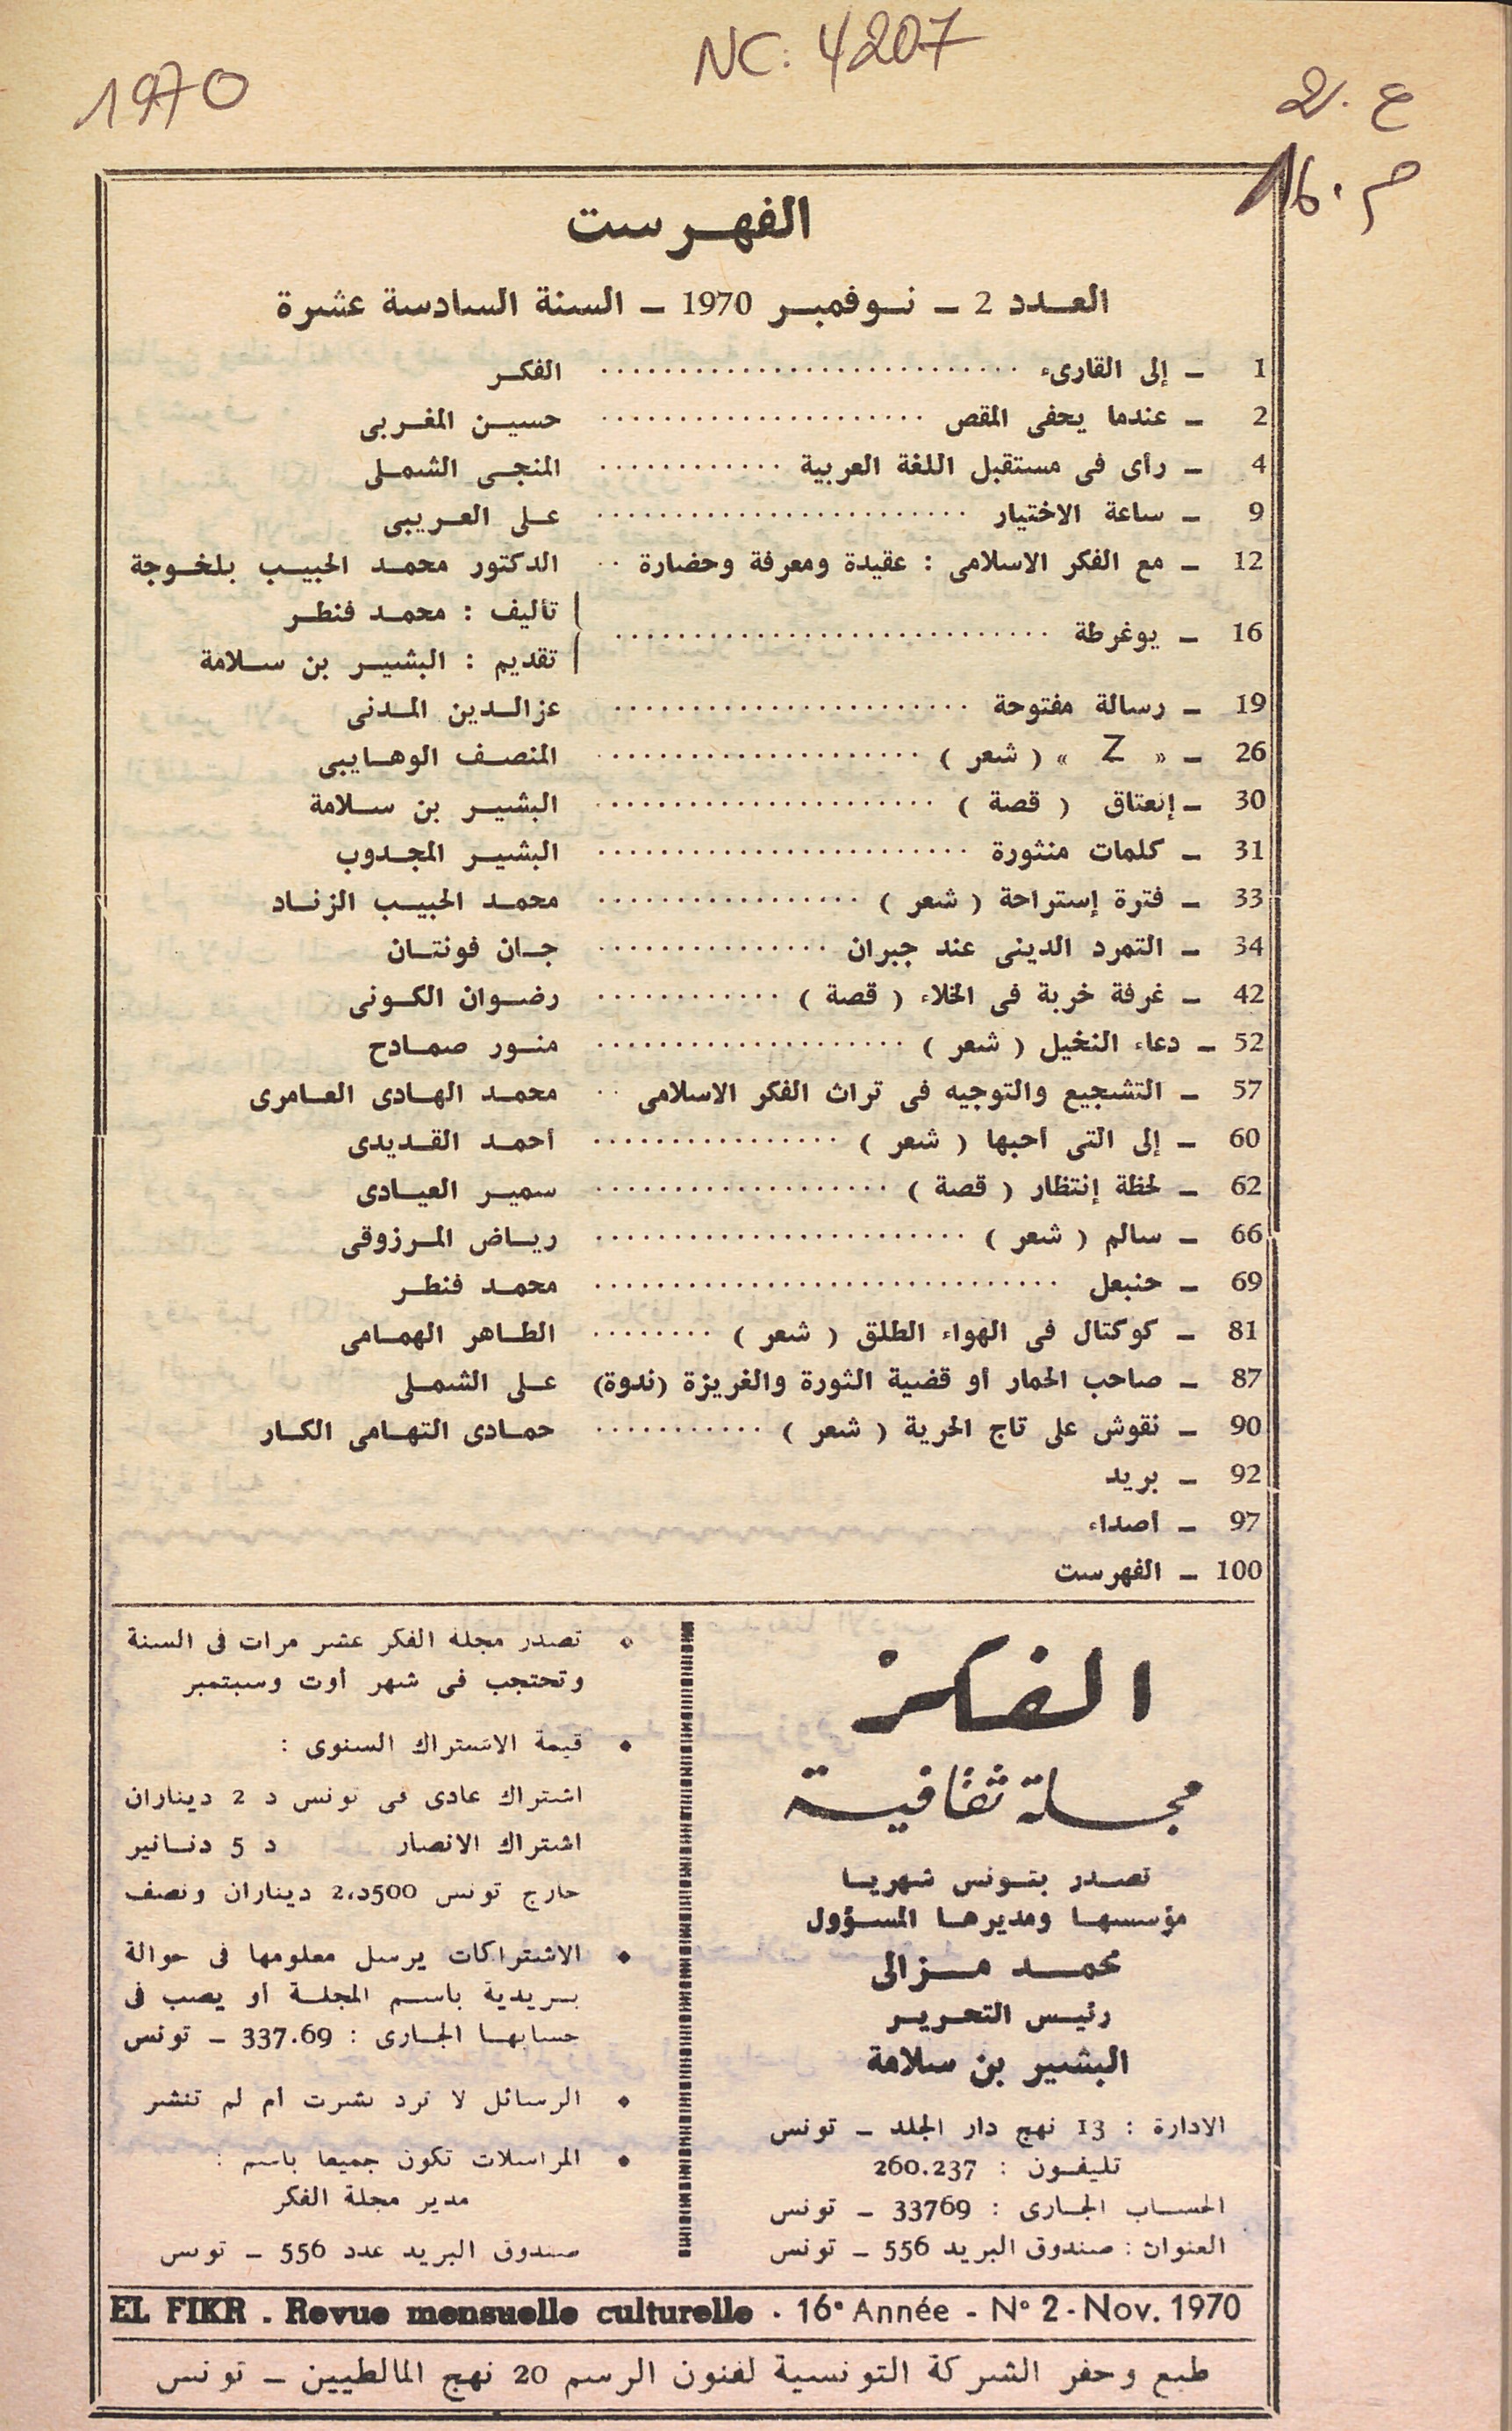 1970
NC: 4207
ع . 2
م . 16
الفهرست
العدد 2 ـ نوفمبر 1970 ـ السنة السادسة عشرة
1 ـ إلى القارىء ............ الفكر
2 ـ عندما يحفى المقص ............ حسين المغربى
4 ـ رأى فى مستقبل اللغة العربية ............ المنجى الشملى
9 ـ ساعة الاختيار ............ على العريبى
12 ـ مع الفكر الاسلامى : عقيدة ومعرفة وحضارة .. الدكتور محمد الحبيب بلخوجة
16 ـ يوغرطة ............ تأليف : محمد فنطر
تقديم : البشير بن سلامة
19 ـ رسالة مفتوحة ............ عزالدين المدنى
26 ـ « Z » ( شعر ) ............ المنصف الوهايبى
30 ـ إنعتاق ( قصة ) ............ البشير بن سلامة
31 ـ كلمات منثورة ............ البشير المجدوب
33 ـ فترة إستراحة ( شعر ) ............ محمد الحبيب الزناد
34 ـ التمرد الدينى عند جبران ............ جان فونتان
42 ـ غرفة خربة فى الخلاء ( قصة ) ............ رضوان الكونى
52 ـ دعاء النخيل ( شعر ) ............ منور صمادح
57 ـ التشجيع والتوجيه فى تراث الفكر الاسلامى .. محمد الهادى العامرى
60 ـ إلى التى أحبها ( شعر ) ............ أحمد القديدى
62 ـ لحظة إنتظار ( قصة ) ............ سمير العيادى
66 ـ سالم ( شعر ) ............ رياض المرزوقى
69 ـ حنبعل ............ محمد فنطر
81 ـ كوكتال فى الهواء الطلق ( شعر ) ........ الطاهر الهمامى
87 ـ صاحب الحمار أو قضية الثورة والغريزة (ندوة) على الشملى
90 ـ نقوش على تاج الحرية ( شعر ) ........... حمادى التهامى الكار
92 ـ بريد
97 ـ أصداء
100 ـ الفهرست
الفكر
مجلة ثقافية
تصدر بتونس شهريا
مؤسسها ومديرها المسؤول
محمد مزالى
رئيس التحرير
البشير بن سلامة
الادارة : 13 نهج دار الجلد ـ تونس
تليفون : 260.237
الحساب الجارى : 33769 ـ تونس
العنوان : صندوق البريد 556 ـ تونس
• تصدر مجلة الفكر عشر مرات فى السنة
وتحتجب فى شهر أوت وسبتمبر
• قيمة الاشتراك السنوى :
اشتراك عادى فى تونس د 2 ديناران
اشتراك الانصار د 5 دنانير
خارج تونس 500د،2 ديناران ونصف
• الاشتراكات يرسل معلومها فى حوالة
بريدية باسم المجلة أو يصب فى
حسابها الجارى : 337.69 ـ تونس
• الرسائل لا ترد نشرت أم لم تنشر
• المراسلات تكون جميعا باسم :
مدير مجلة الفكر
صندوق البريد عدد 556 ـ تونس
EL FIKR . Revue mensuelle culturelle . 16e Année - N° 2 - Nov. 1970
طبع وحفر الشركة التونسية لفنون الرسم 20 نهج المالطيين ـ تونس